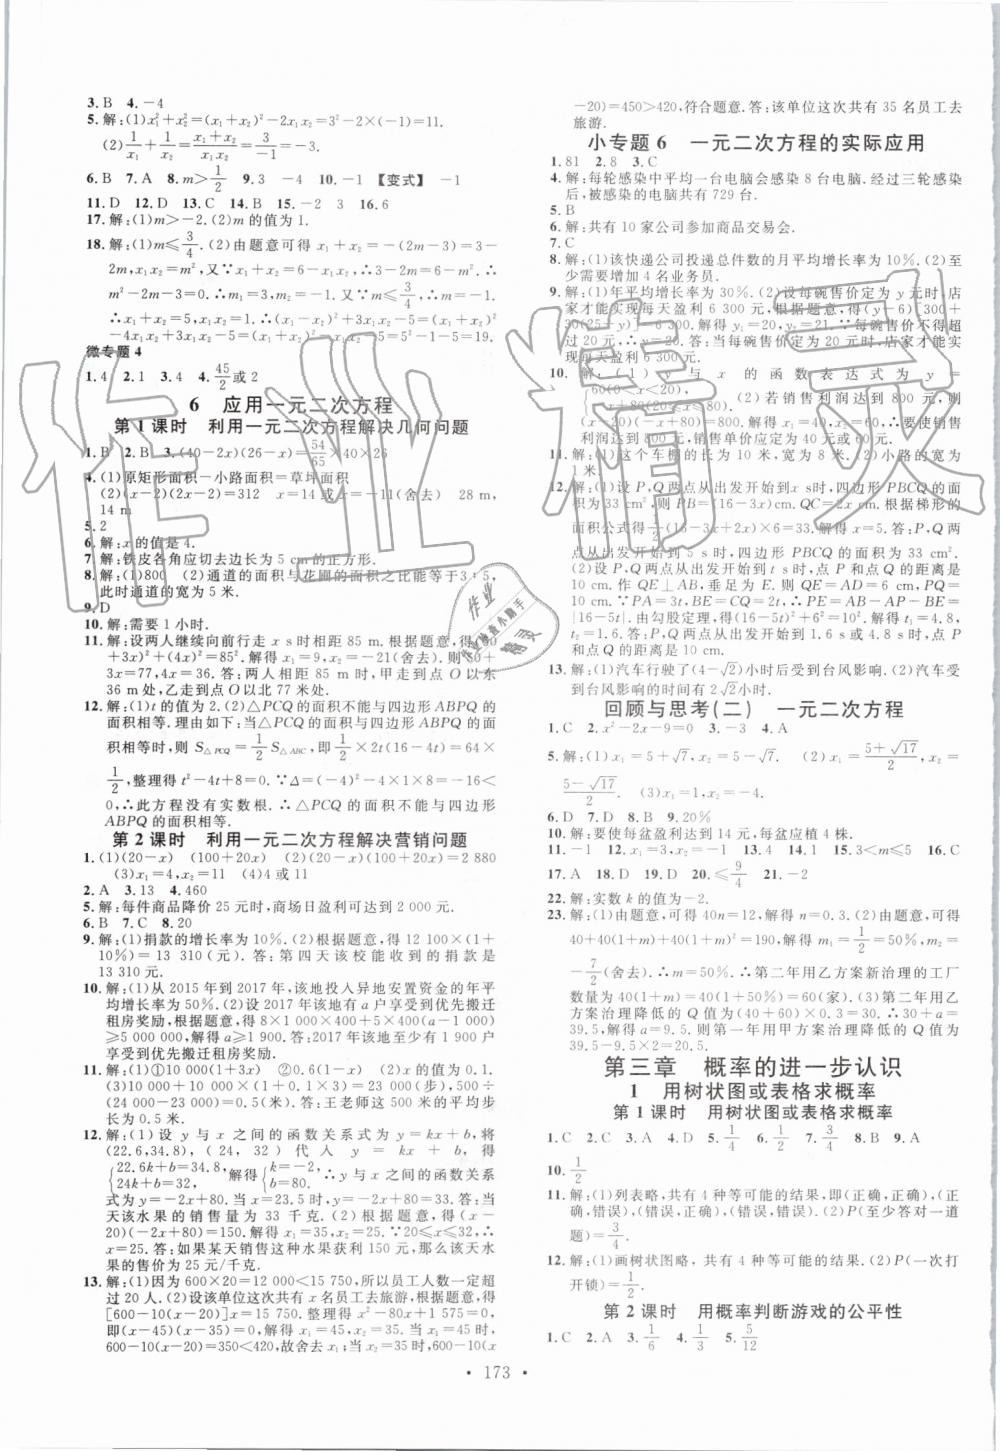 3. B  4. －4
5. 解:(1)x₁²＋x₂²＝(x₁＋x₂)²－2x₁x₂＝3²－2×(－1)＝11.
(2)1/x₁＋1/x₂＝(x₁＋x₂)/(x₁x₂)＝3/(－1)＝－3.
6. B  7. A  8. m＞1/2  9. 3  －4  10. －1 【变式】 －1
11. D  12. D  13. C  14. B  15. －2  3  16. 6
17. 解:(1)m＞－2. (2)m 的值为 1.
18. 解:(1)m≤3/4. (2)由题意可得 x₁＋x₂＝－(2m－3)＝3－
2m, x₁x₂＝m². 又∵x₁＋x₂＝6－x₁x₂, ∴3－2m＝6－m². ∴
m²－2m－3＝0. ∴m₁＝3, m₂＝－1. 又∵m≤3/4, ∴m＝－1.
∴x₁＋x₂＝5, x₁x₂＝1. ∴(x₁－x₂)²＋3x₁x₂－5＝(x₁＋x₂)²－
4x₁x₂＋3x₁x₂－5＝(x₁＋x₂)²－x₁x₂－5＝5²－1－5＝19.
微专题 4
1. 4  2. 1  3. 4  4. 45/2或 2
6 应用一元二次方程
第 1 课时 利用一元二次方程解决几何问题
1. B  2. B  3. (40－2x)(26－x)＝54/65×40×26
4. (1)原矩形面积－小路面积＝草坪面积
(2)(x－2)(2x－2)＝312  x＝14 或 x＝－11(舍去)  28 m,
14 m
5. 2
6. 解:x 的值是 4.
7. 解:铁皮各角应切去边长为 5 cm 的正方形.
8. 解:(1)800 (2)通道的面积与花圃的面积之比能等于 3∶5,
此时通道的宽为 5 米.
9. D
10. 解:需要 1 小时.
11. 解:设两人继续向前行走 x s 时相距 85 m. 根据题意, 得(30
＋3x)²＋(4x)²＝85². 解得 x₁＝9, x₂＝－31(舍去). 当 x＝9 时, 50
＋3x＝77, 4x＝36. 答: 两人相距 85 m 时, 甲走到点 O 以东
36 m 处, 乙走到点 O 以北 77 米处.
12. 解:(1)t 的值为 2. (2)△PCQ 的面积不能与四边形 ABPQ 的
面积相等. 理由如下:当△PCQ 的面积与四边形 ABPQ 的面
积相等时, 则 S△PCQ＝1/2S△ABC, 即1/2×2t(16－4t)＝64×
1/2, 整理得 t²－4t＋8＝0. ∵Δ＝(－4)²－4×8＝－16＜
0, ∴此方程没有实数根. ∴△PCQ 的面积不能与四边形
ABPQ 的面积相等.
第 2 课时 利用一元二次方程解决营销问题
1. (1)(20－x) (100＋20x) (2)(20－x)(100＋20x)＝2 880
(3)x₁＝4, x₂＝11 (4)4 或 11
2. A  3. 13  4. 460
5. 解:每件商品降价 25 元时, 商场日盈利可达到 2 000 元.
6. B  7. C  8. 20
9. 解:(1)捐款的增长率为 10%. (2)根据题意, 得 12 100×(1＋
10%)＝13 310(元). 答: 第四天该校能收到的捐款是
13 310 元.
10. 解:(1)从 2015 年到 2017 年, 该地投入异地安置资金的年平
均增长率为 50%. (2)设 2017 年该地有 a 户享受到优先搬迁
租房奖励, 根据题意, 得 8×1 000×400＋5×400(a－1 000)
≥5 000 000. 解得 a≥1 900. 答:2017 年该地至少有 1 900 户
享受到优先搬迁租房奖励.
11. 解:(1)①10 000(1＋3x) ②0.6(1－x) (2)由题意, 得
10 000(1＋3x)×0.6(1－x)＝7 020. 解得 x₁＝17/30＞0.5(舍去),
x₂＝0.1. 则 x＝0.1. 答:x 的值为 0.1. (3)根据题意, 得
10 000＋10 000×(1＋0.1×3)＝23 000(步), 500÷
(24 000－23 000)＝0.5(米). 答: 王老师这 500 米的平均步
长为 0.5 米.
12. 解:(1)设 y 与 x 之间的函数关系式为 y＝kx＋b, 将
(22.6, 34.8), (24, 32) 代入 y＝kx＋b, 得
{22.6k＋b＝34.8, 24k＋b＝32. 解得{k＝－2, b＝80. ∴y 与 x 之间的函数关系
式为 y＝－2x＋80. 当 x＝23.5 时, y＝－2x＋80＝33. 答:当
天该水果的销售量为 33 千克. (2)根据题意, 得(x－
20)(－2x＋80)＝150. 解得 x₁＝35, x₂＝25. ∵20≤x≤32, ∴
x＝25. 答:如果某天销售这种水果获利 150 元, 那么该天水
果的售价为 25 元/千克.
13. 解:(1)因为 600×20＝12 000＜15 750, 所以员工人数一定超
过 20 人. (2)设该单位这次共有 x 名员工去旅游, 根据题意, 得
[600－10(x－20)]x＝15 750. 整理得 x²－80x＋1 575＝0,
即(x－45)(x－35)＝0. 解得 x₁＝45, x₂＝35. 当 x＝45 时,
600－10(x－20)＝350＜420, 故舍去 x₁; 当 x＝35 时, 600－10(x
－20)＝450＞420, 符合题意. 答:该单位这次共有 35 名员工去
旅游.
小专题 6 一元二次方程的实际应用
1. 81  2. 8  3. C
4. 解:每轮感染中平均一台电脑会感染 8 台电脑. 经过三轮感染
后, 被感染的电脑共有 729 台.
5. B
6. 解:共有 10 家公司参加商品交易会.
7. C
8. 解:(1)该快递公司投递总件数的月平均增长率为 10%. (2)至
少需要增加 4 名业务员.
9. 解:(1)年平均增长率为 30%. (2)设每碗售价定为 y 元时, 店
家才能实现每天盈利 6 300 元. 根据题意, 得
解得 y₁＝20, y₂＝ ∵每碗售价不得超
过 20 元, ∴y＝20. 答:当每碗售价定为 20 元时, 店家才能实现
每天盈利 6 300 元.
10. 解: (1) y 与 x 的函数表达式为 y＝
(2) 若销售利润达到 800 元, 则
∴要使销售
利润达到 800 元, 销售单价应定为 40 元或 60 元.
11. 解:(1)这个车棚的长为 10 米, 宽为 8 米. (2)小路的宽为
1 米.
12. 解:(1)设 P, Q 两点从出发开始到 x s 时, 四边形 PBCQ 的面
积为 33 cm². 则 PB＝(16－3x)cm. QC＝2x cm. 根据梯形的
面积公式得1/2(16－3x＋2x)×6＝33, 解得 x＝5. 答:P, Q 两
点从出发开始到 5 s 时, 四边形 PBCQ 的面积为 33 cm².
(2)设 P, Q 两点从出发开始到 t s 时, 点 P 和点 Q 的距离是
10 cm. 作 QE⊥AB, 垂足为 E. 则 QE＝AD＝6 cm, PQ＝
10 cm. ∵PA＝3t, BE＝CQ＝2t, ∴PE＝AB－AP－BE＝
|16－5t|. 由勾股定理, 得(16－5t)²＋6²＝10². 解得 t₁＝4.8,
t₂＝1.6. 答:P, Q 两点从出发开始到 1.6 s 或 4.8 s 时, 点 P
和点 Q 的距离是 10 cm.
13. 解:(1)汽车行驶了(4－√2)小时后受到台风影响. (2)汽车受
到台风影响的时间有 2√2小时.
回顾与思考(二) 一元二次方程
1. C  2. x²－2x－9＝0  3. －3  4. A
5. 解:(1)x₁＝5＋√7, x₂＝5－√7. (2)x₁＝(5＋√17)/2, x₂＝
(5－√17)/2. (3)x₁＝1, x₂＝2.
6. D  7. D  8. B  9. 20%
10. 解:要使每盆盈利达到 14 元, 每盆应植 4 株.
11. －1  12. 4  13. 4  14. 1  15. 3＜m≤5  16. C
17. A  18. D  19. D  20. ≤9/4  21. －2
22. 解:实数 k 的值为－2.
23. 解:(1)由题意, 可得 40n＝12, 解得 n＝0.3. (2)由题意, 可得
40＋40(1＋m)＋40(1＋m)²＝190, 解得 m₁＝1/2＝50%, m₂＝
－7/2(舍去). ∴m＝50%. ∴第二年用乙方案新治理的工厂
数量为 40(1＋m)＝40(1＋50%)＝60(家). (3)第二年用乙
方案治理降低的 Q 值为(40＋60)×0.3＝30. ∴30＋2a＝
39.5, 解得 a＝ 则第一年用甲方案治理降低的 Q 值为
39.5－30＝9.5.
第三章 概率的进一步认识
1 用树状图或表格求概率
第 1 课时 用树状图或表格求概率
1. C  2. C  3. A  4. D  5. 1/4  6. 1/2  7. 3/4  8. B  9. A
10. 1/2
11. 解:(1)列表略, 共有 4 种等可能的结果, 即(正确,正确), (正
确,错误), (错误,正确), (错误,错误). (2)P(至少答对一道
题)＝3/4.
12. 解:(1)画树状图略, 共有 4 种等可能的结果. (2)P(一次打
开锁)＝1/2.
第 2 课时 用概率判断游戏的公平性
1. C  2. A  3. 1/6  4. 1/3  5. 5/12
· 173 ·
作业精灵
作业检查小助手
精灵